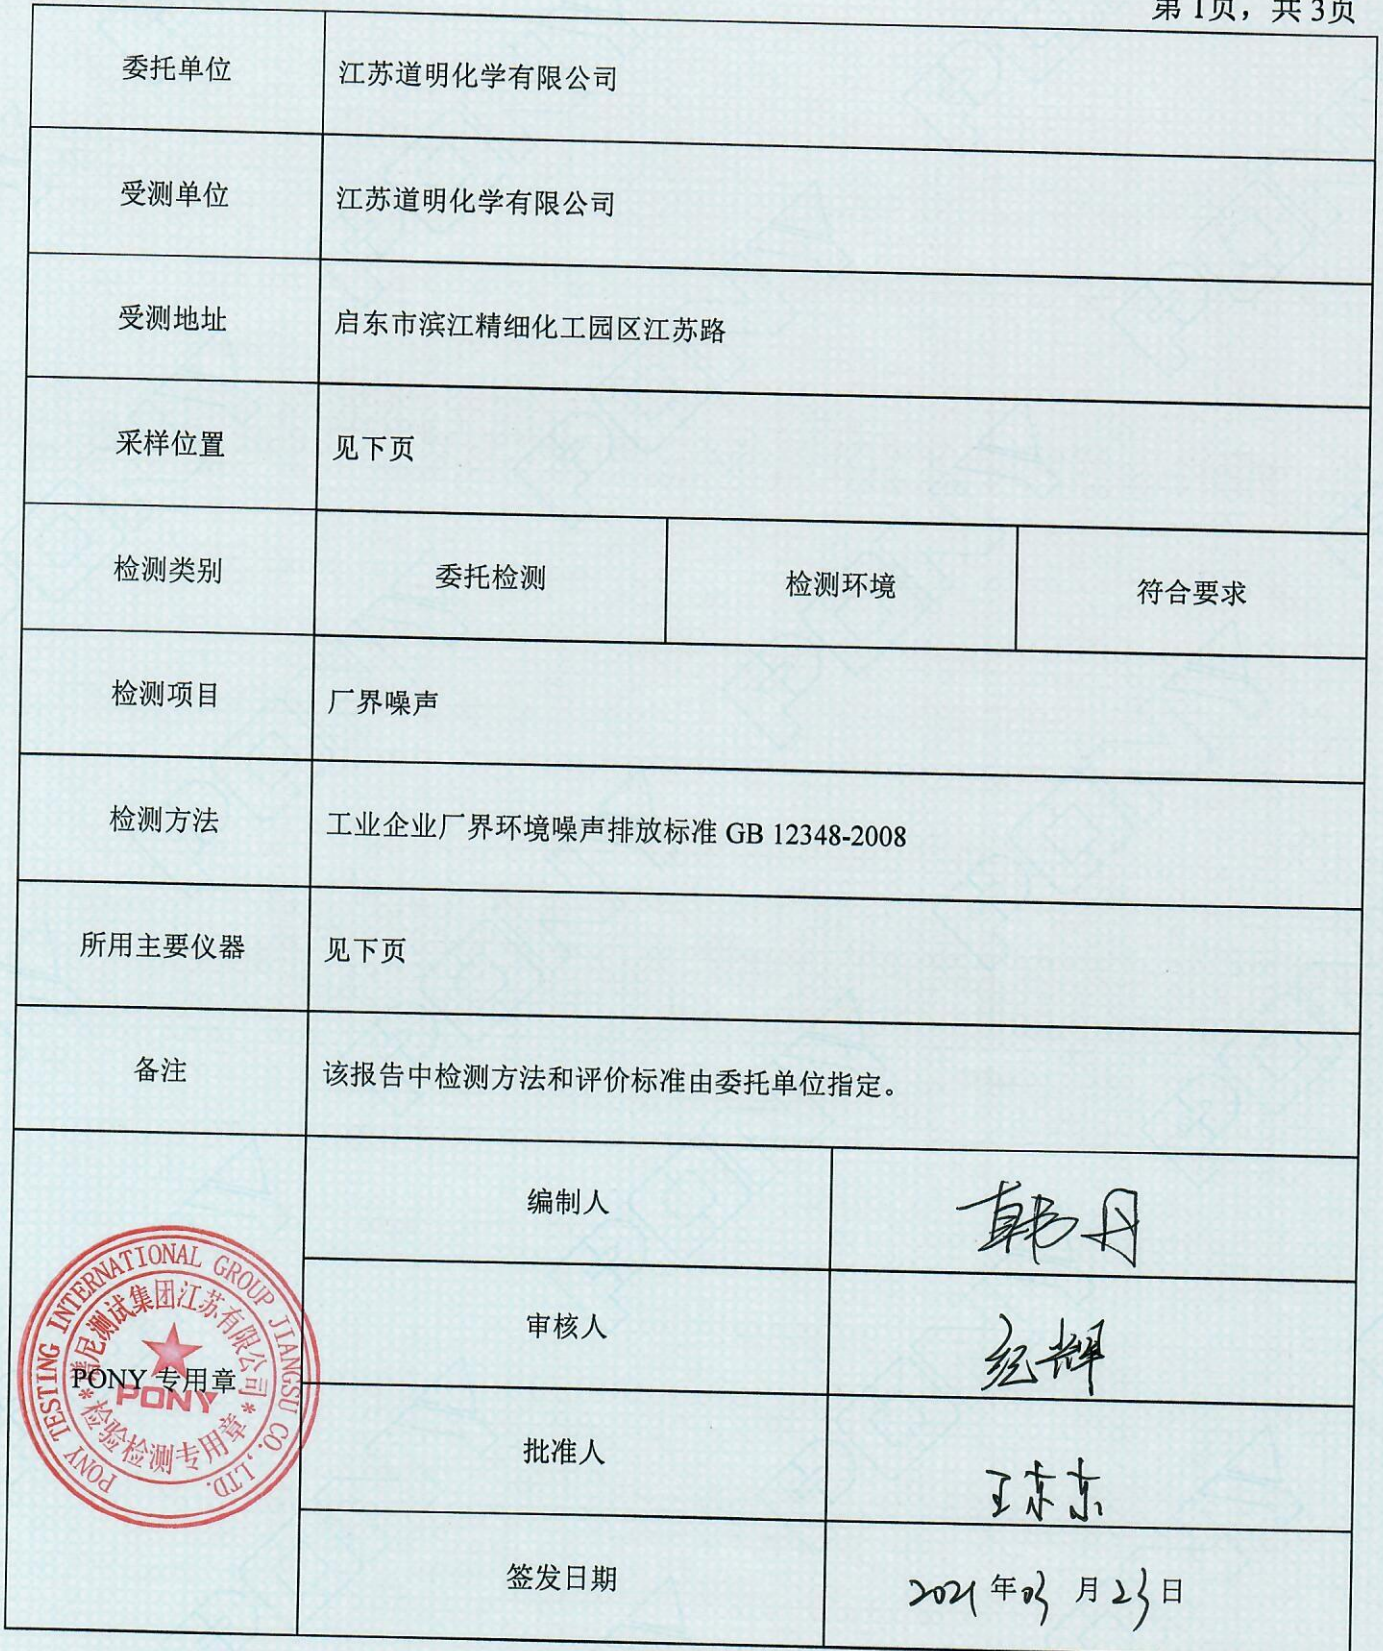 第1页，共3页
委托单位 江苏道明化学有限公司
受测单位 江苏道明化学有限公司
受测地址 启东市滨江精细化工园区江苏路
采样位置 见下页
检测类别 委托检测 检测环境 符合要求
检测项目 厂界噪声
检测方法 工业企业厂界环境噪声排放标准 GB 12348-2008
所用主要仪器 见下页
备注 该报告中检测方法和评价标准由委托单位指定。
编制人 韩丹
审核人
批准人 王东东
签发日期 2021年03月23日
PONY 专用章
PONY TESTING INTERNATIONAL GROUP JIANGSU CO.,LTD.
谱尼测试集团江苏有限公司
PONY
*检验检测专用章*